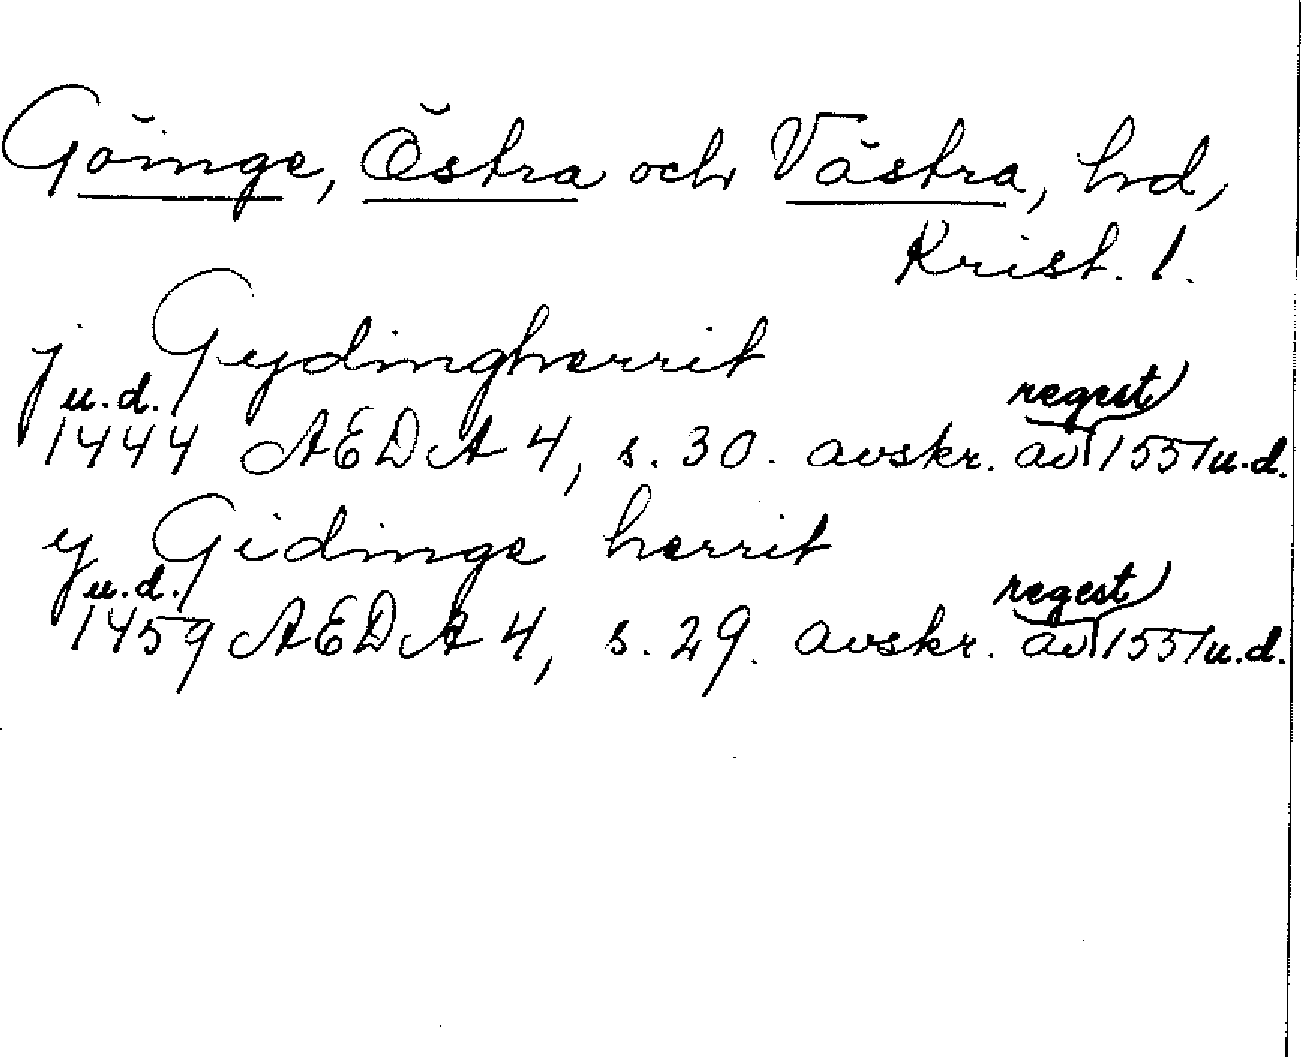 Göinge, Östra och Västra, hd,
Krist. l.
j Gydingherrit
u.d. regest
1444 AEDA 4, s. 30. avskr. av 1551 u.d.
y Gidinge herrit
u.d. regest
1459 AEDA 4, s. 29. avskr. av 1551 u.d.